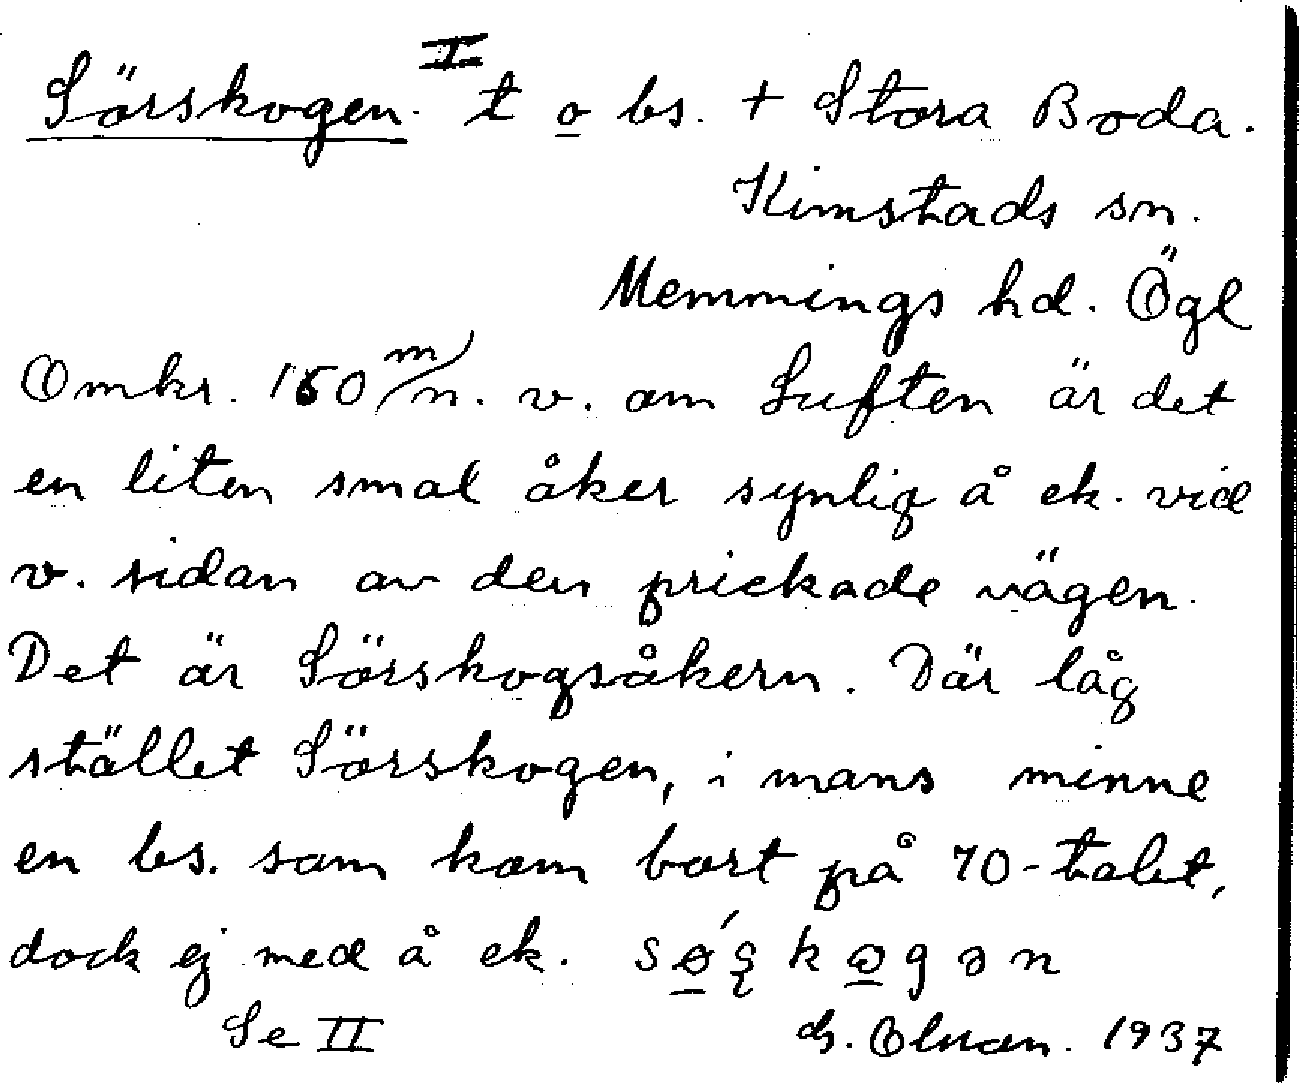 Sörskogen. I t o bs. + Stora Boda.
Kimstads sn.
Memmings hd. Ögl
Omkr. 150 m/n. v. om Luften är det
en liten smal åker synlig å ek. vid
v. sidan av den prickade vägen.
Det är Sörskogsåkern. Där låg
stället Sörskogen, i mans minne
en bs. som kom bort på 70-talet,
dock ej med å ek.
Se II 1937